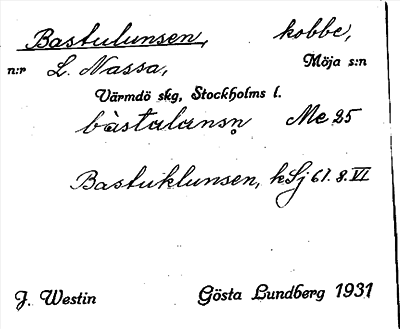 Bastulunsen, kobbe,
n:r L. Nassa, Möja s:n
Värmdö skg, Stockholms l.
bàstalansn̥ Me 25
Bastuklunsen, kSj 61. 8. VI
J. Westin Gösta Lundberg 1931